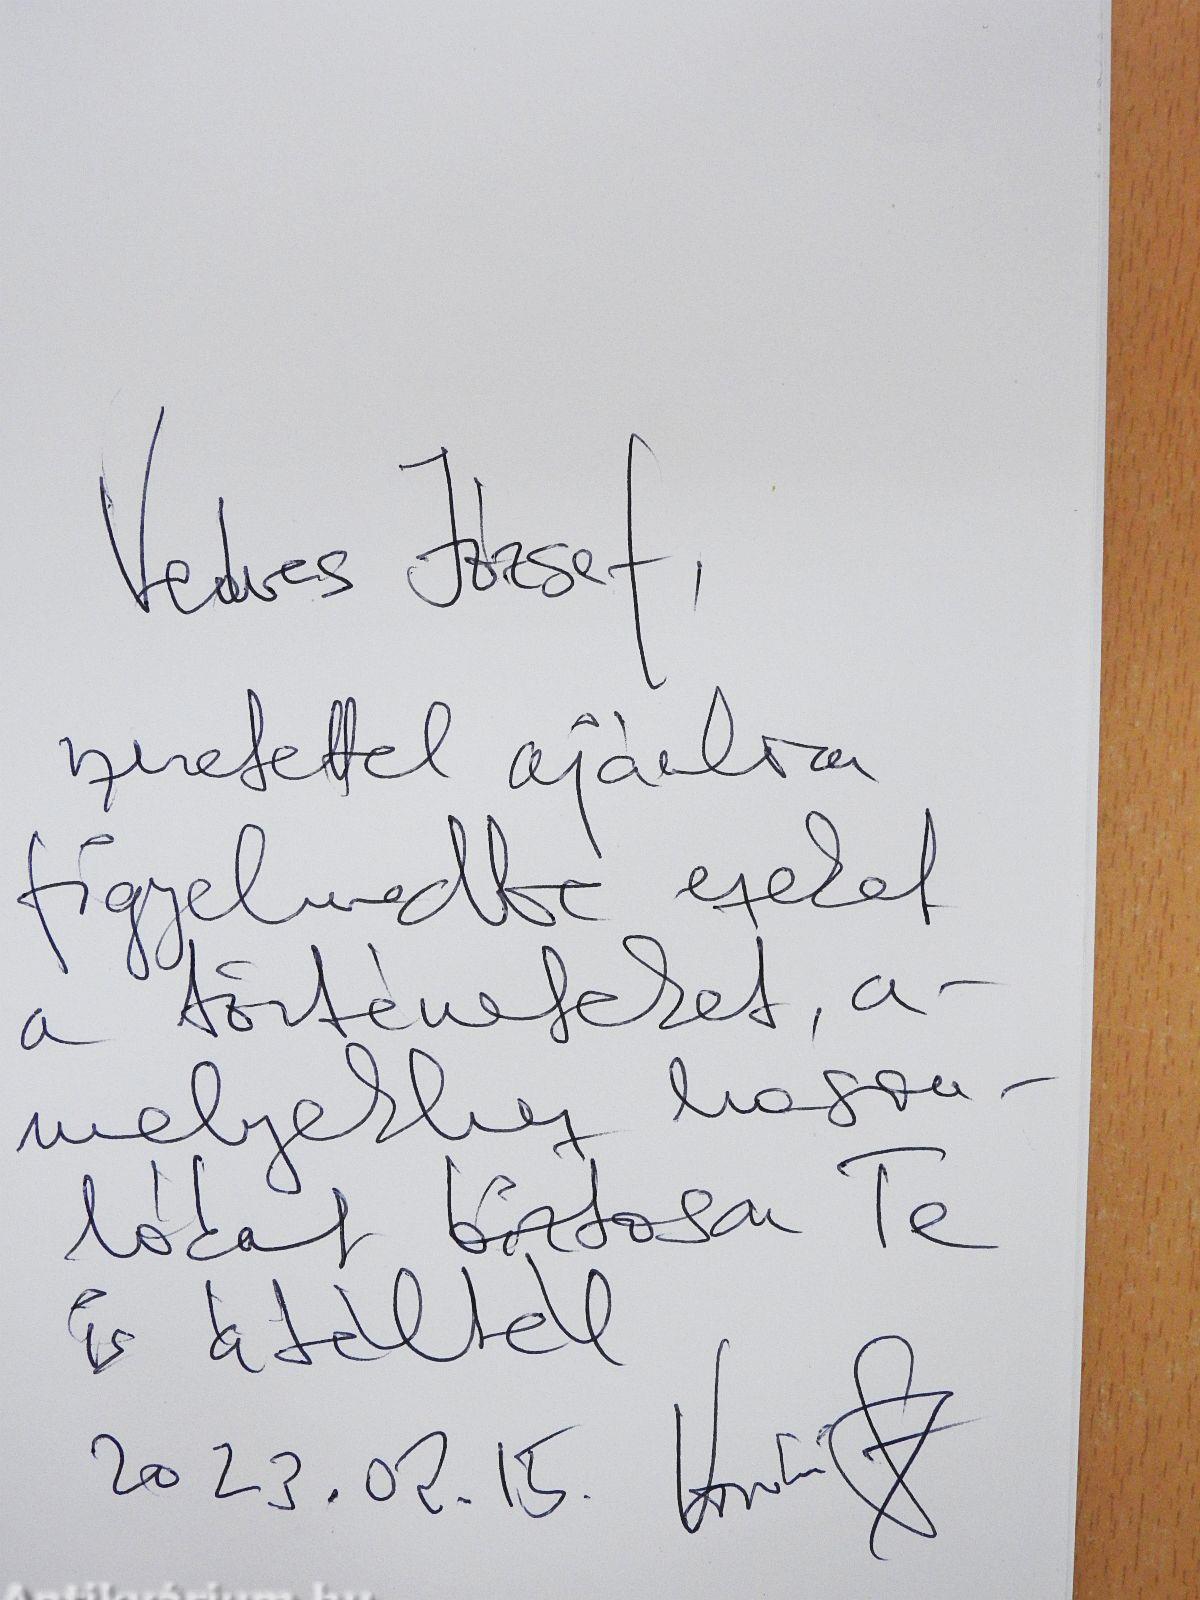 Vedres József,
szeretettel ajánlva
figyelmedbe ezeket
a történeteket, a-
melyekhez hason-
lókat biztosan Te
is átéltél
2023.02.15.
Antikvárium.hu